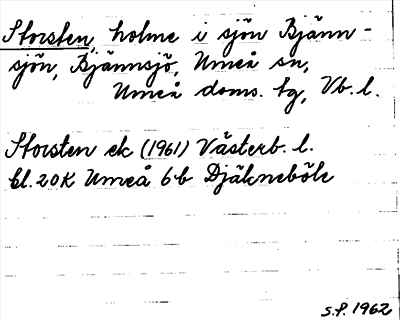 Storsten, holme i sjön Bjänn-
sjön, Bjännsjö, Umeå sn,
Umeå doms. tg, Vb. l.
Storsten ek (1961) Västerb. l.
bl. 20K Umeå 6b Djäkneböle
S.F. 1962